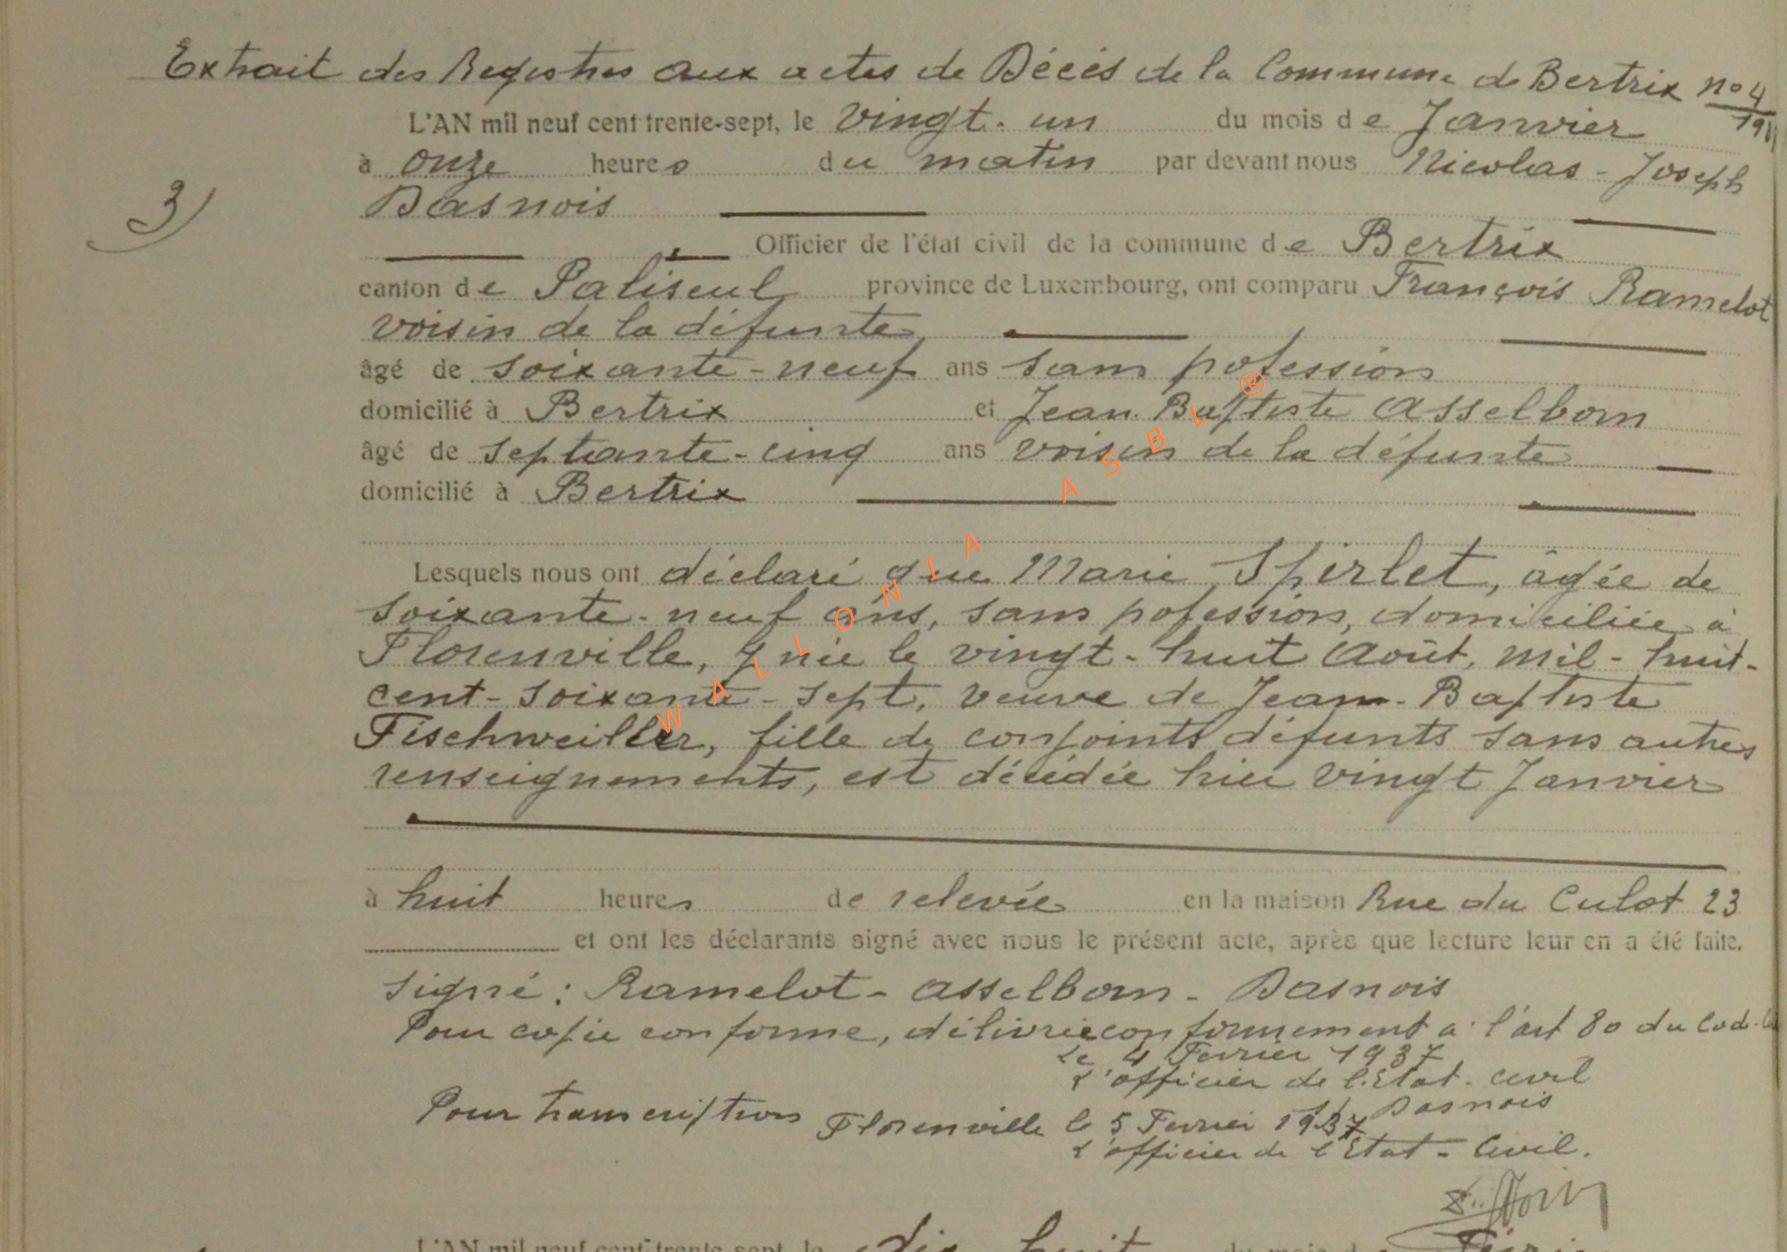 Extrait des Registres aux actes de Décès de la Commune de Bertrix no 4
L'AN mil neuf cent trente-sept, le vingt-un du mois de Janvier
à onze heures du matin par devant nous Nicolas-Joseph
3)
Basnois
Officier de l'état civil de la commune de Bertrix
canton de Paliseul province de Luxembourg, ont comparu François Ramelot
voisin de la défunte
âgé de soixante-neuf ans sans pofession
domicilié à Bertrix et Jean Baptiste Asselborn
âgé de septante-cinq ans voisin de la défunte
domicilié à Bertrix
Lesquels nous ont déclaré que Marie Spirlet, âgée de
soixante-neuf ans, sans pofession, domiciliée à
Florenville, y née le vingt-huit Août, mil-huit-
cent-soixante-sept, veuve de Jean-Baptiste
Fischweiller, fille de conjoints défunts sans autres
renseignements, est décédée hier vingt Janvier
à huit heures de relevée en la maison Rue du Culot 23
et ont les déclarants signé avec nous le présent acte, après que lecture leur en a été faite.
Signé: Ramelot - Asselborn - Basnois
Pour copie conforme, délivrée conformement a l'art 80 du Cod.
Le 4 Fevrier 1937
L'officier de l'Etat-civil
Basnois
Pour transcription Florenville le 5 Fevrier 1937
L'officier de l'Etat-Civil.
L'AN mil neuf cent trente-sept, le dix-huit du mois de
WALLONIA ASBL ®